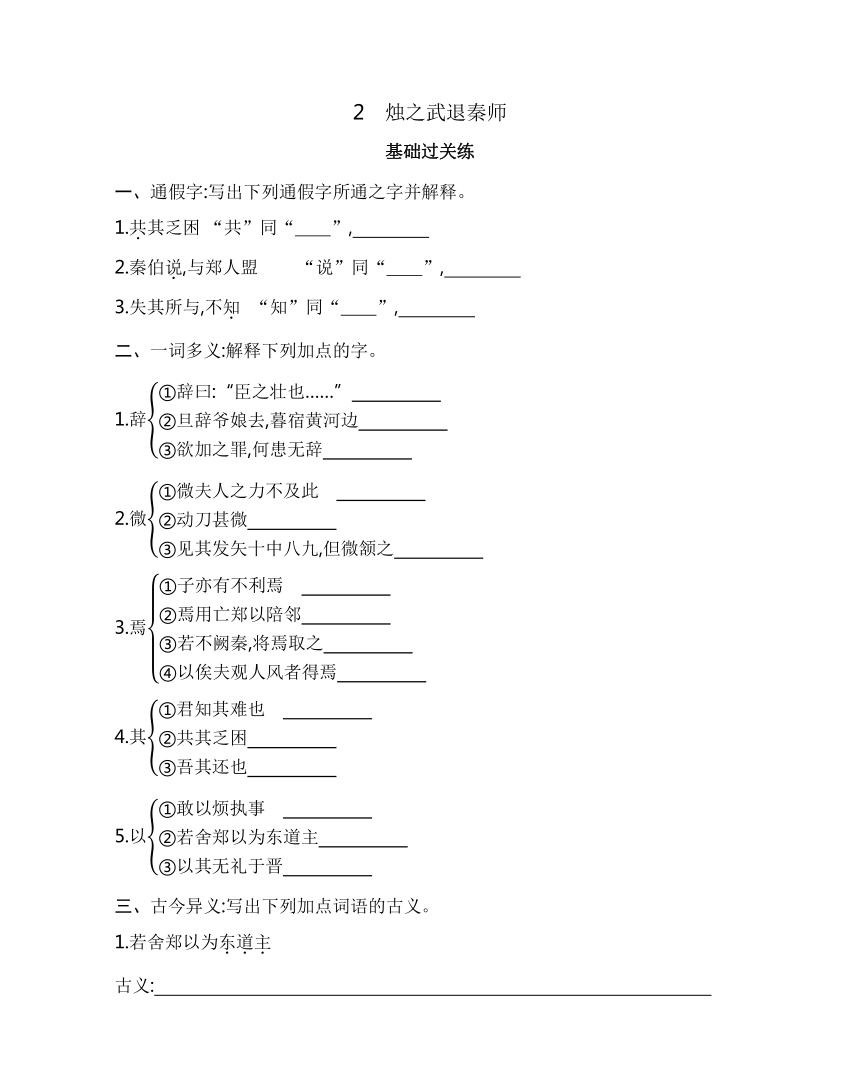 2 烛之武退秦师
基础过关练
一、通假字:写出下列通假字所通之字并解释。
1.共其乏困 “共”同“____”,________
2.秦伯说,与郑人盟 “说”同“____”,________
3.失其所与,不知 “知”同“____”,________
二、一词多义:解释下列加点的字。
1.辞
①辞曰:“臣之壮也……”_________
②旦辞爷娘去,暮宿黄河边_________
③欲加之罪,何患无辞_________
2.微
①微夫人之力不及此 _________
②动刀甚微_________
③见其发矢十中八九,但微颔之_________
3.焉
①子亦有不利焉 _________
②焉用亡郑以陪邻_________
③若不阙秦,将焉取之_________
④以俟夫观人风者得焉_________
4.其
①君知其难也 _________
②共其乏困_________
③吾其还也_________
5.以
①敢以烦执事 _________
②若舍郑以为东道主_________
③以其无礼于晋_________
三、古今异义:写出下列加点词语的古义。
1.若舍郑以为东道主
古义:_________________________________________________________